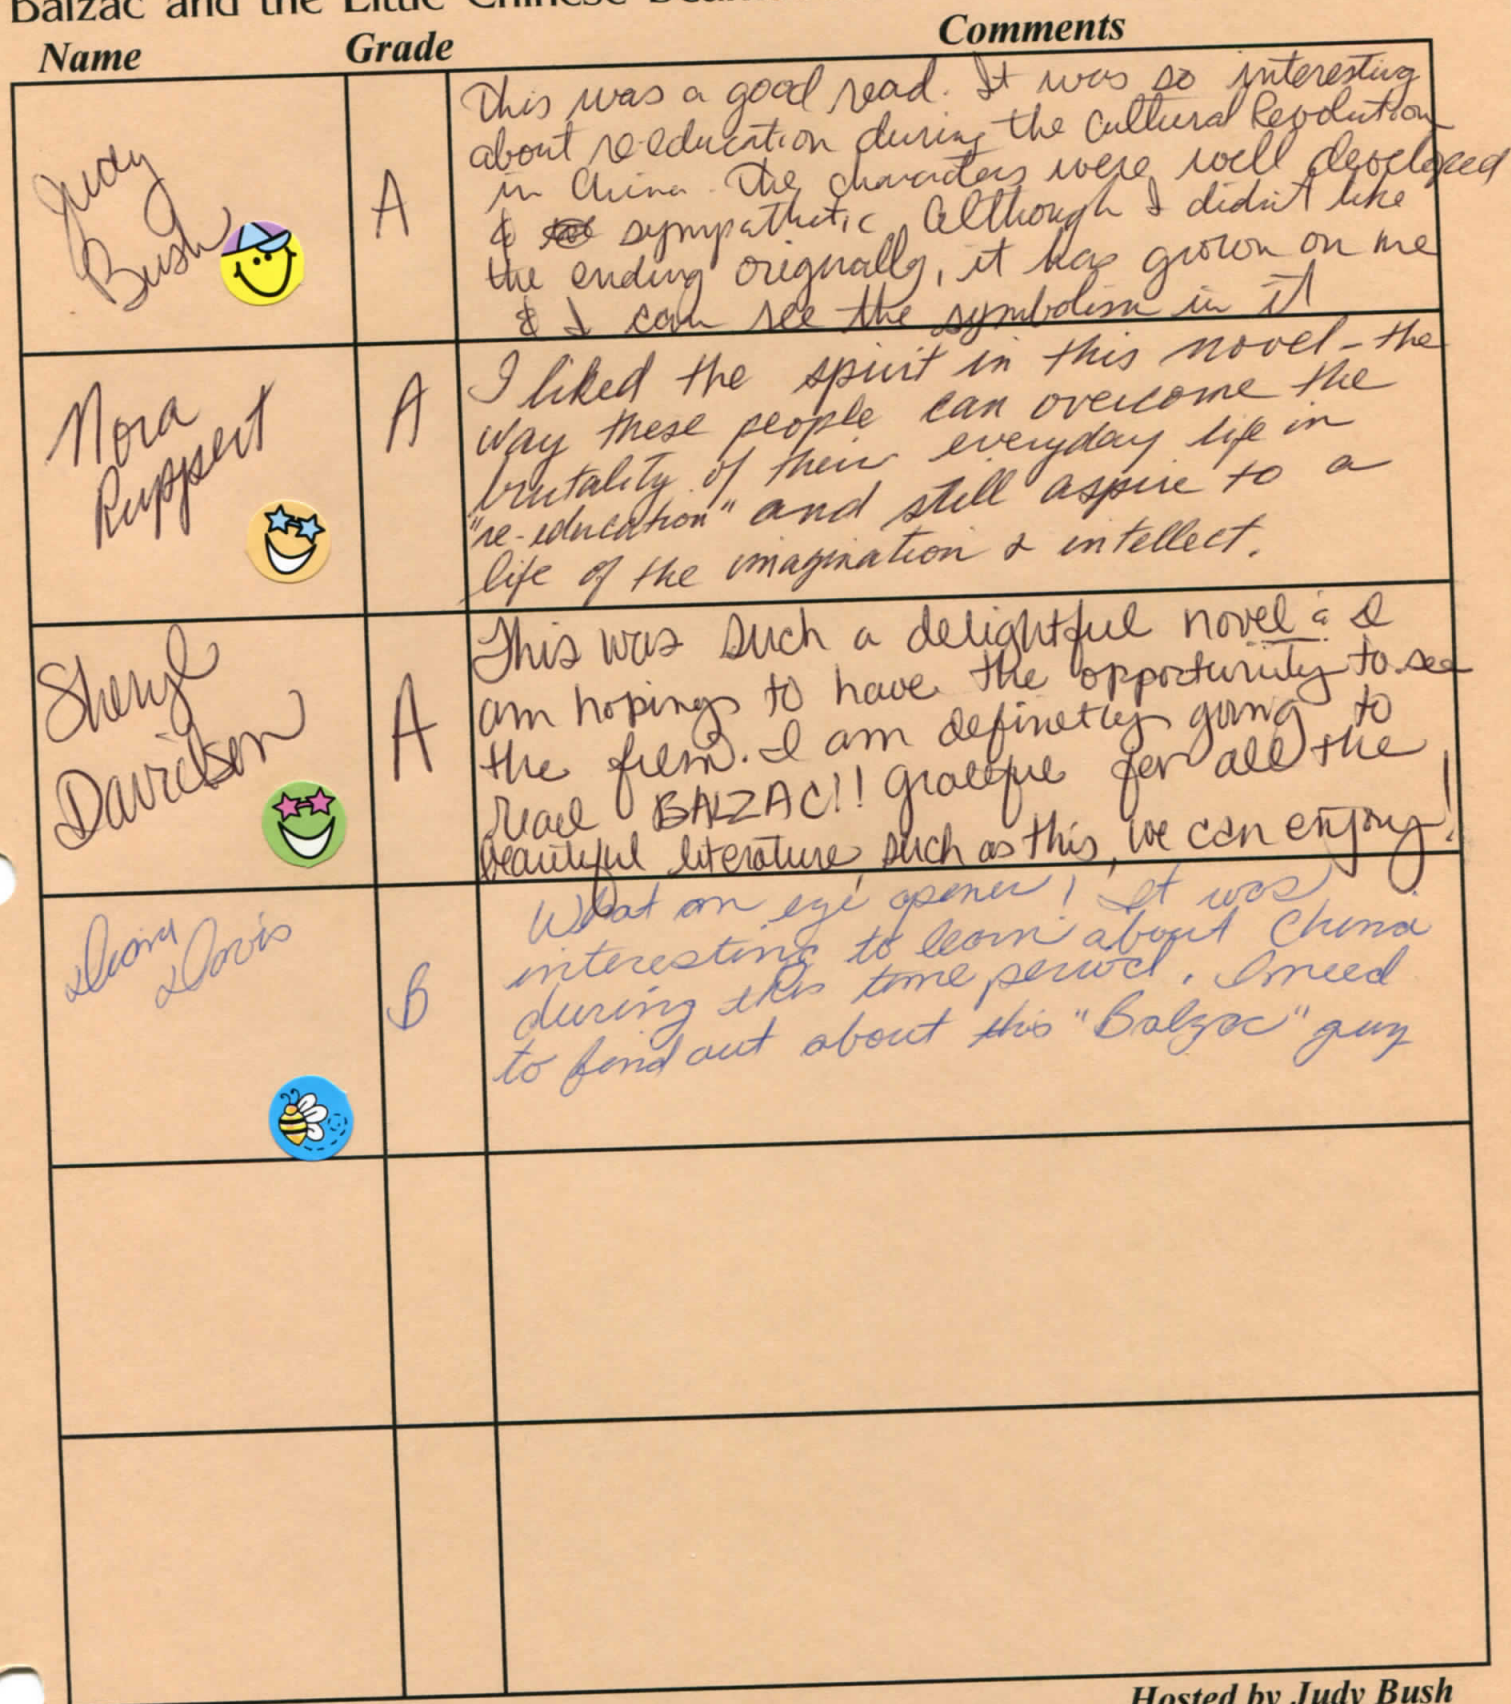 Balzac and the Little Chinese
Name Grade Comments
Judy
Bush
A
This was a good read. It was so interesting
about re-education during the Cultural Revolution
in China. The characters were well developed
& sympathetic. Although I didn't like
the ending originally, it has grown on me
& I can see the symbolism in it
Nora
Ruppert
A
I liked the spirit in this novel - the
way these people can overcome the
brutality of their everyday life in
"re-education" and still aspire to a
life of the imagination & intellect.
Sheryl
Davidson
A
This was such a delightful novel & I
am hoping to have the opportunity to see
the film. I am definetly going to
read BALZAC!! grateful for all the
beautiful literature, such as this, we can enjoy!
Diana
Davis
B
What an eye opener! It was
interesting to learn about China
during this time period. I need
to find out about this "Balzac" guy
Hosted by Judy Bush